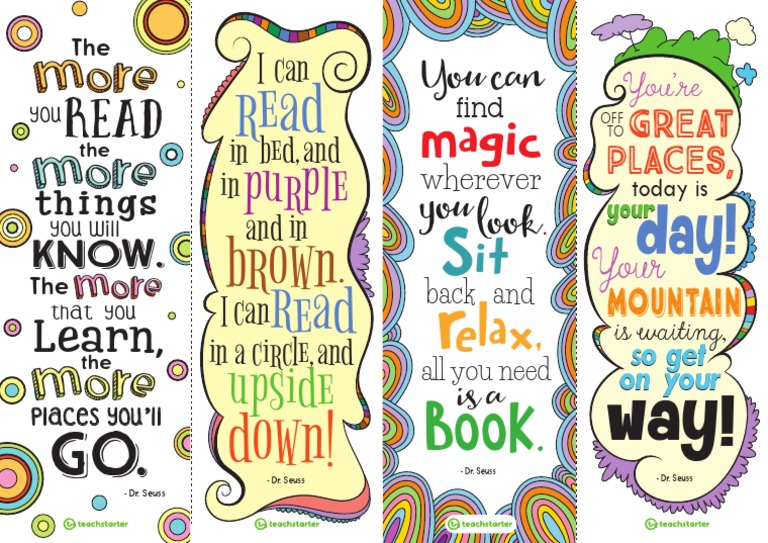 The
more
you READ
the
more
things
you will
KNOW.
The more
that you
Learn,
the
more
PLACES YOU'll
GO.
- Dr. Seuss
teachstarter
I can
READ
in bed, and
in PURPLE
and in
BROWN.
I can READ
in a circle, and
UPSIDE
DOWN!
- Dr. Seuss
teachstarter
You can
find
magic
wherever
you look.
Sit
back and
relax,
all you need
is a
BOOK.
- Dr. Seuss
teachstarter
You're
OFF TO GREAT
PLACES,
today is
your day!
Your
MOUNTAIN
is waiting,
so get
on your
way!
- Dr. Seuss
teachstarter